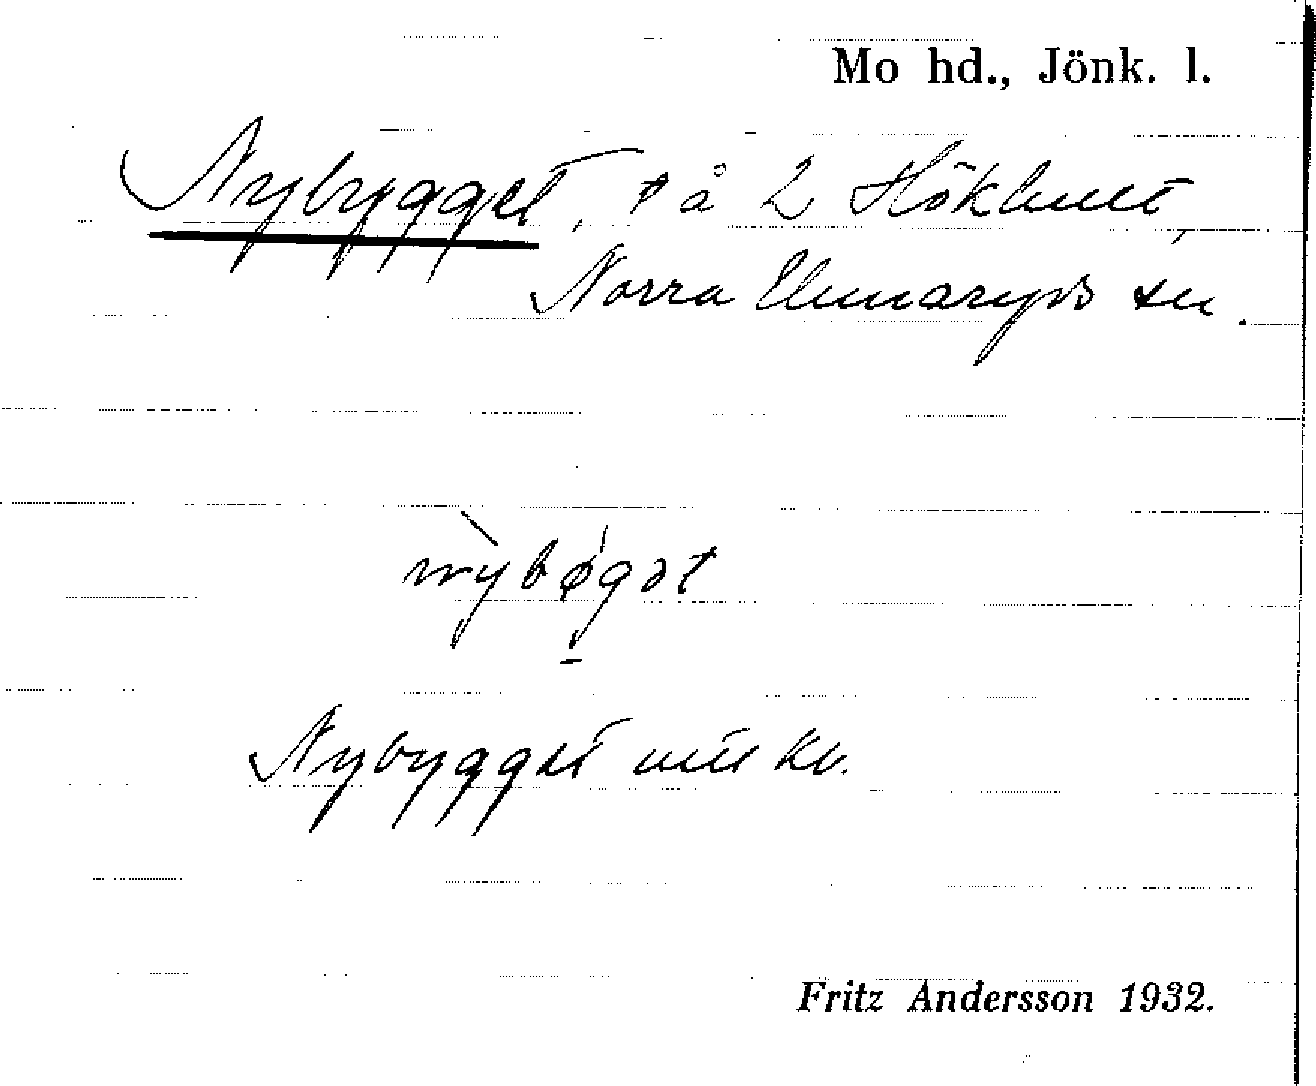 Mo hd., Jönk. l.
Nybygget, på 2 Hökhult,
Norra Unnaryds sn.
nybøgət
Nybygget
Fritz Andersson 1932.